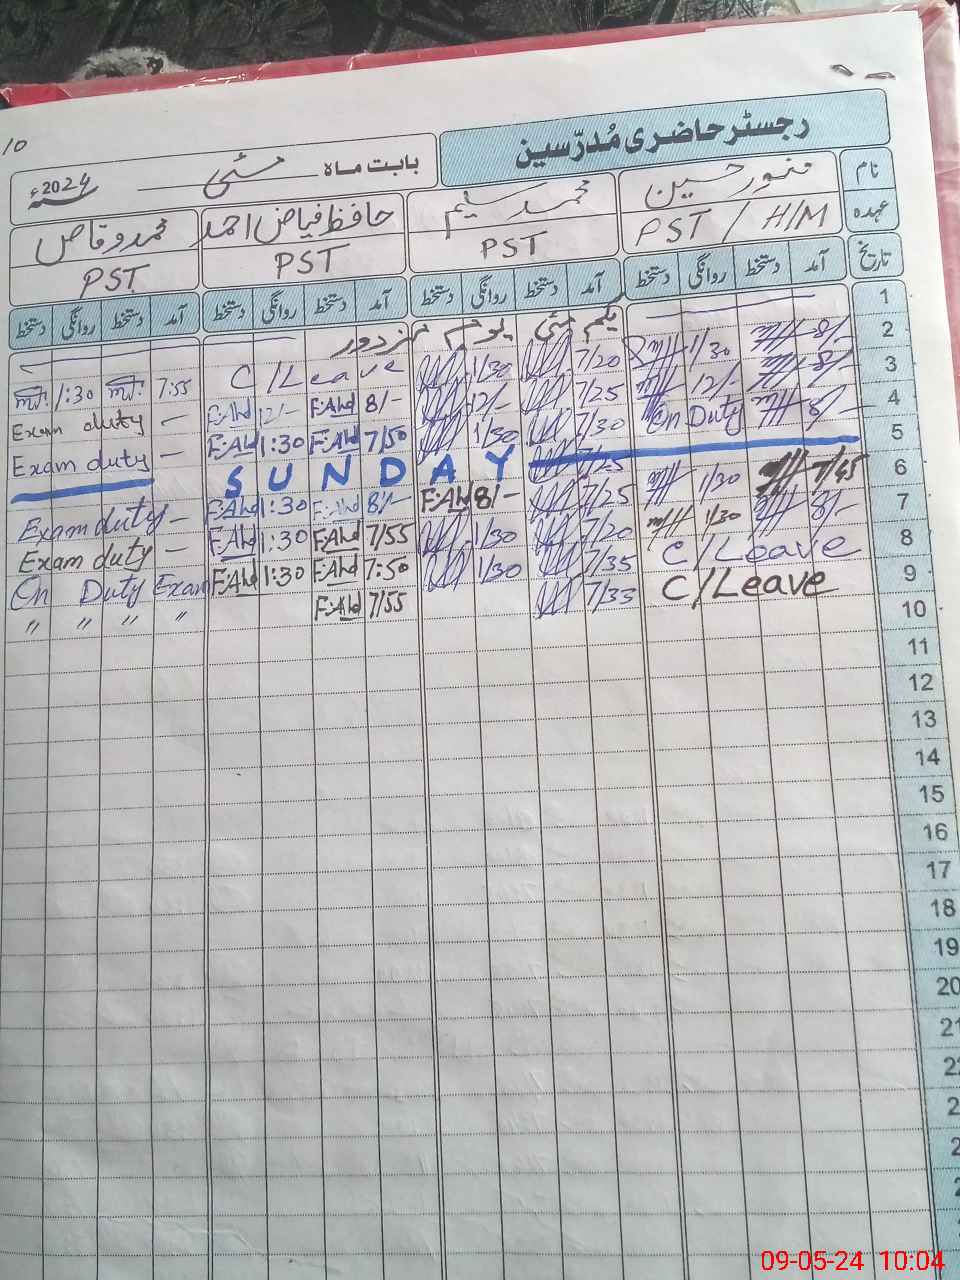 10
رجسٹر حاضری مُدرّسین
بابت ماہ مئی 2024ء
نام منور حسین محمد سلیم حافظ فیاض احمد محمد وقاص
عہدہ PST / H/M PST PST PST
تاریخ آمد دستخط روانگی دستخط آمد دستخط روانگی دستخط آمد دستخط روانگی دستخط آمد دستخط روانگی دستخط
1 یکم مئی یوم مزدور
2 8/- 1/30 7/20 1/30 C/Leave 7:55 1:30
3 8/- 12/- 7/25 12/- 8/- F.Ahd 12/- F.Ahd Exam duty –
4 8/- On Duty 7/30 1/30 7/50 F.Ahd 1:30 F.Ahd Exam duty –
5 SUNDAY 7/25
6 7/45 1/30 7/25 8/- F.Ahd 8/- F.Ahd 1:30 F.Ahd Exam duty –
7 8/- 1/30 7/20 1/30 7/55 F.Ahd 1:30 F.Ahd Exam duty –
8 C/Leave 7/35 1/30 7:50 F.Ahd 1:30 F.Ahd On Duty Exam
9 C/Leave 7/33 7/55 F.Ahd " " " "
10
11
12
13
14
15
16
17
18
19
20
21
22
09-05-24 10:04